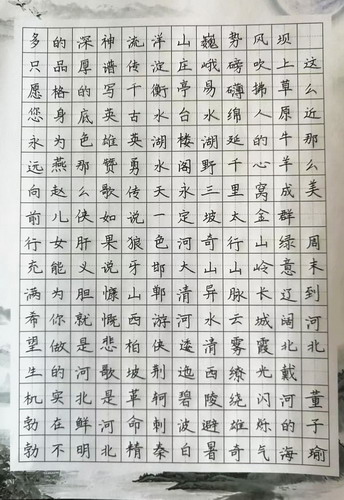 这么近那么美 周末到河北 董子瑜
坝上草原牛羊成群绿意辽阔北戴河的海
风吹拂人的心窝金山岭长城霞光闪烁气
势磅礴绵延千里太行山脉云雾缭绕雄奇
巍峨易水湖野三坡奇山异水清西陵避暑
山庄亭台楼阁永定河大清河逶迤碧波白
洋淀衡水湖水天一色邯郸游侠荆轲刺秦
流传千古英勇传说狼牙山西柏坡革命精
神谱写英雄赞歌如果说慷慨悲歌是河北
深厚的底色那么侠肝义胆就是河北鲜明
的品格身为燕赵儿女能为你做的实在不
多只愿您永远向前行充满希望生机勃勃